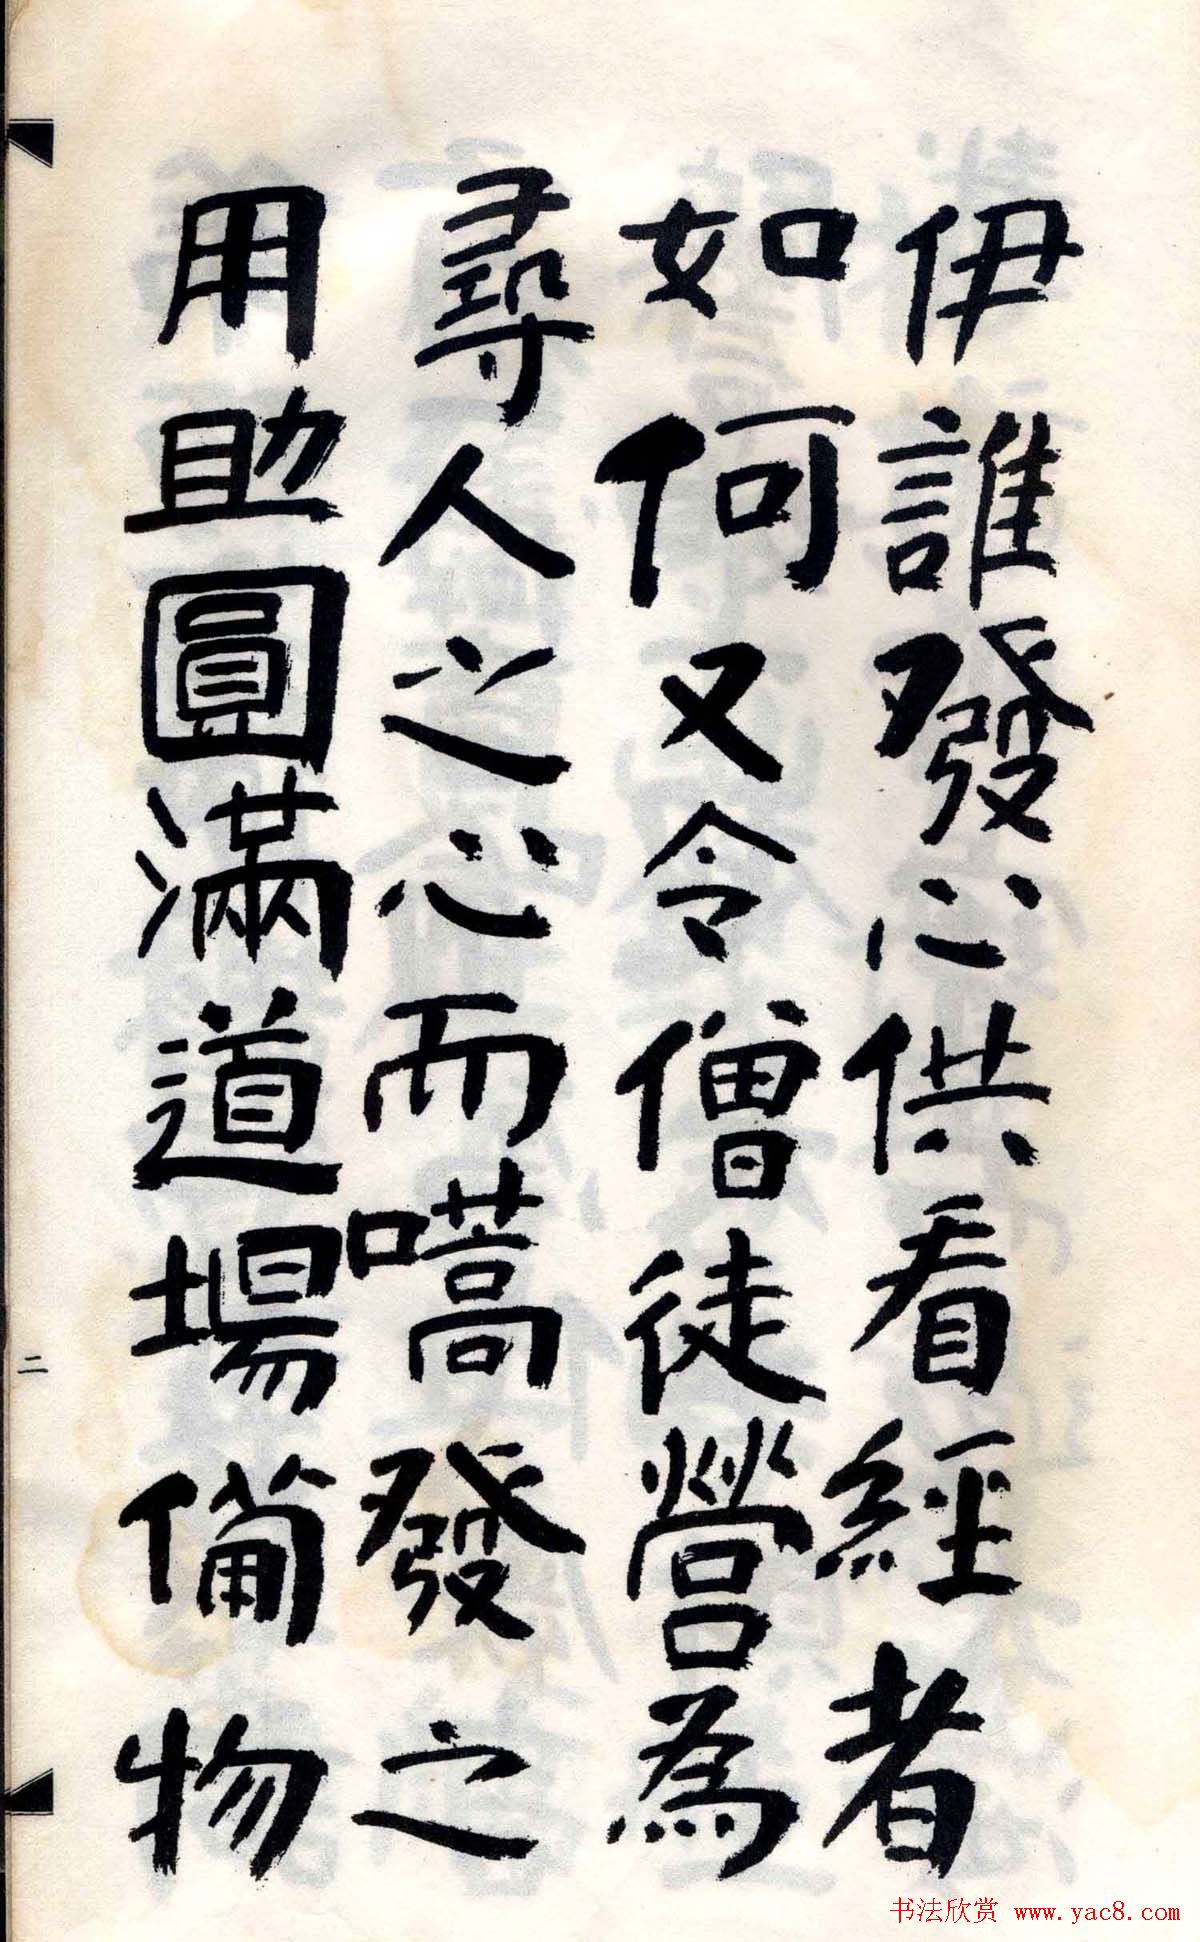 伊誰發心供看經者
如何又令僧徒營為
尋人之心而嚆發之
用助圓滿道場備物
二
书法欣赏 www.yac8.com